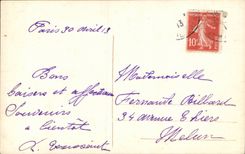 Paris 30 avril 13
Bons
baisers et affectueux
Souvenirs
à bientôt
Mademoiselle
Fernande Billard
34 avenue Thiers
Melun
10